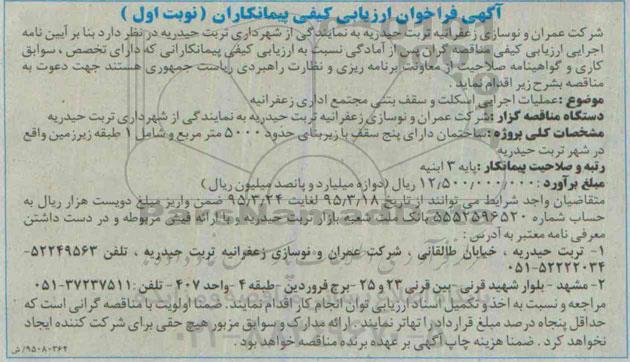 آگهی فراخوان ارزیابی کیفی پیمانکاران (نوبت اول)
شرکت عمران و نوسازی زعفرانیه تربت حیدریه به نمایندگی از شهرداری تربت حیدریه در نظر دارد بنا بر آیین نامه
اجرایی ارزیابی کیفی مناقصه گران پس از آمادگی نسبت به ارزیابی کیفی پیمانکارانی که دارای تخصص ، سوابق
کاری و گواهینامه صلاحیت از معاونت برنامه ریزی و نظارت راهبردی ریاست جمهوری هستند جهت دعوت به
مناقصه بشرح زیر اقدام نماید .
موضوع : عملیات اجرایی اسکلت و سقف بتنی مجتمع اداری زعفرانیه
دستگاه مناقصه گزار : شرکت عمران و نوسازی زعفرانیه تربت حیدریه به نمایندگی از شهرداری تربت حیدریه
مشخصات کلی پروژه : ساختمان دارای پنج سقف با زیربنای حدود ۵۰۰۰ متر مربع و شامل ۱ طبقه زیرزمین واقع
در شهر تربت حیدریه
رتبه و صلاحیت پیمانکار : پایه ۳ ابنیه
مبلغ برآورد : ۱۲/۵۰۰/۰۰۰/۰۰۰ ریال (دوازه میلیارد و پانصد میلیون ریال)
متقاضیان واجد شرایط می توانند از تاریخ ۹۵/۳/۱۸ لغایت ۹۵/۳/۲۴ ضمن واریز مبلغ دویست هزار ریال به
حساب شماره ۵۵۵۲۵۹۶۵۲۰ بانک ملت شعبه بازار تربت حیدریه و با ارائه فیش مربوطه و در دست داشتن
معرفی نامه معتبر به آدرس :
۱- تربت حیدریه ، خیابان طالقانی ، شرکت عمران و نوسازی زعفرانیه تربت حیدریه ، تلفن ۵۲۲۴۹۵۶۳-
۰۵۱-۵۲۲۲۲۰۳۴
۲- مشهد - بلوار شهید قرنی- بین قرنی ۲۳ و ۲۵ - برج فروردین -طبقه ۴ -واحد ۴۰۷ - تلفن : ۳۷۲۳۷۵۱۱-۰۵۱
مراجعه و نسبت به اخذ و تکمیل اسناد ارزیابی توان انجام کار اقدام نمایند. ضمنا اولویت با مناقصه گرانی است که
حداقل پنجاه درصد مبلغ قرارداد را تهاتر نمایند . ارائه مدارک و سوابق مزبور هیچ حقی برای شرکت کننده ایجاد
نخواهد کرد . ضمنا هزینه چاپ آگهی بر عهده برنده مناقصه خواهد بود .
۹۵۰۸۰۳۶۴/ش